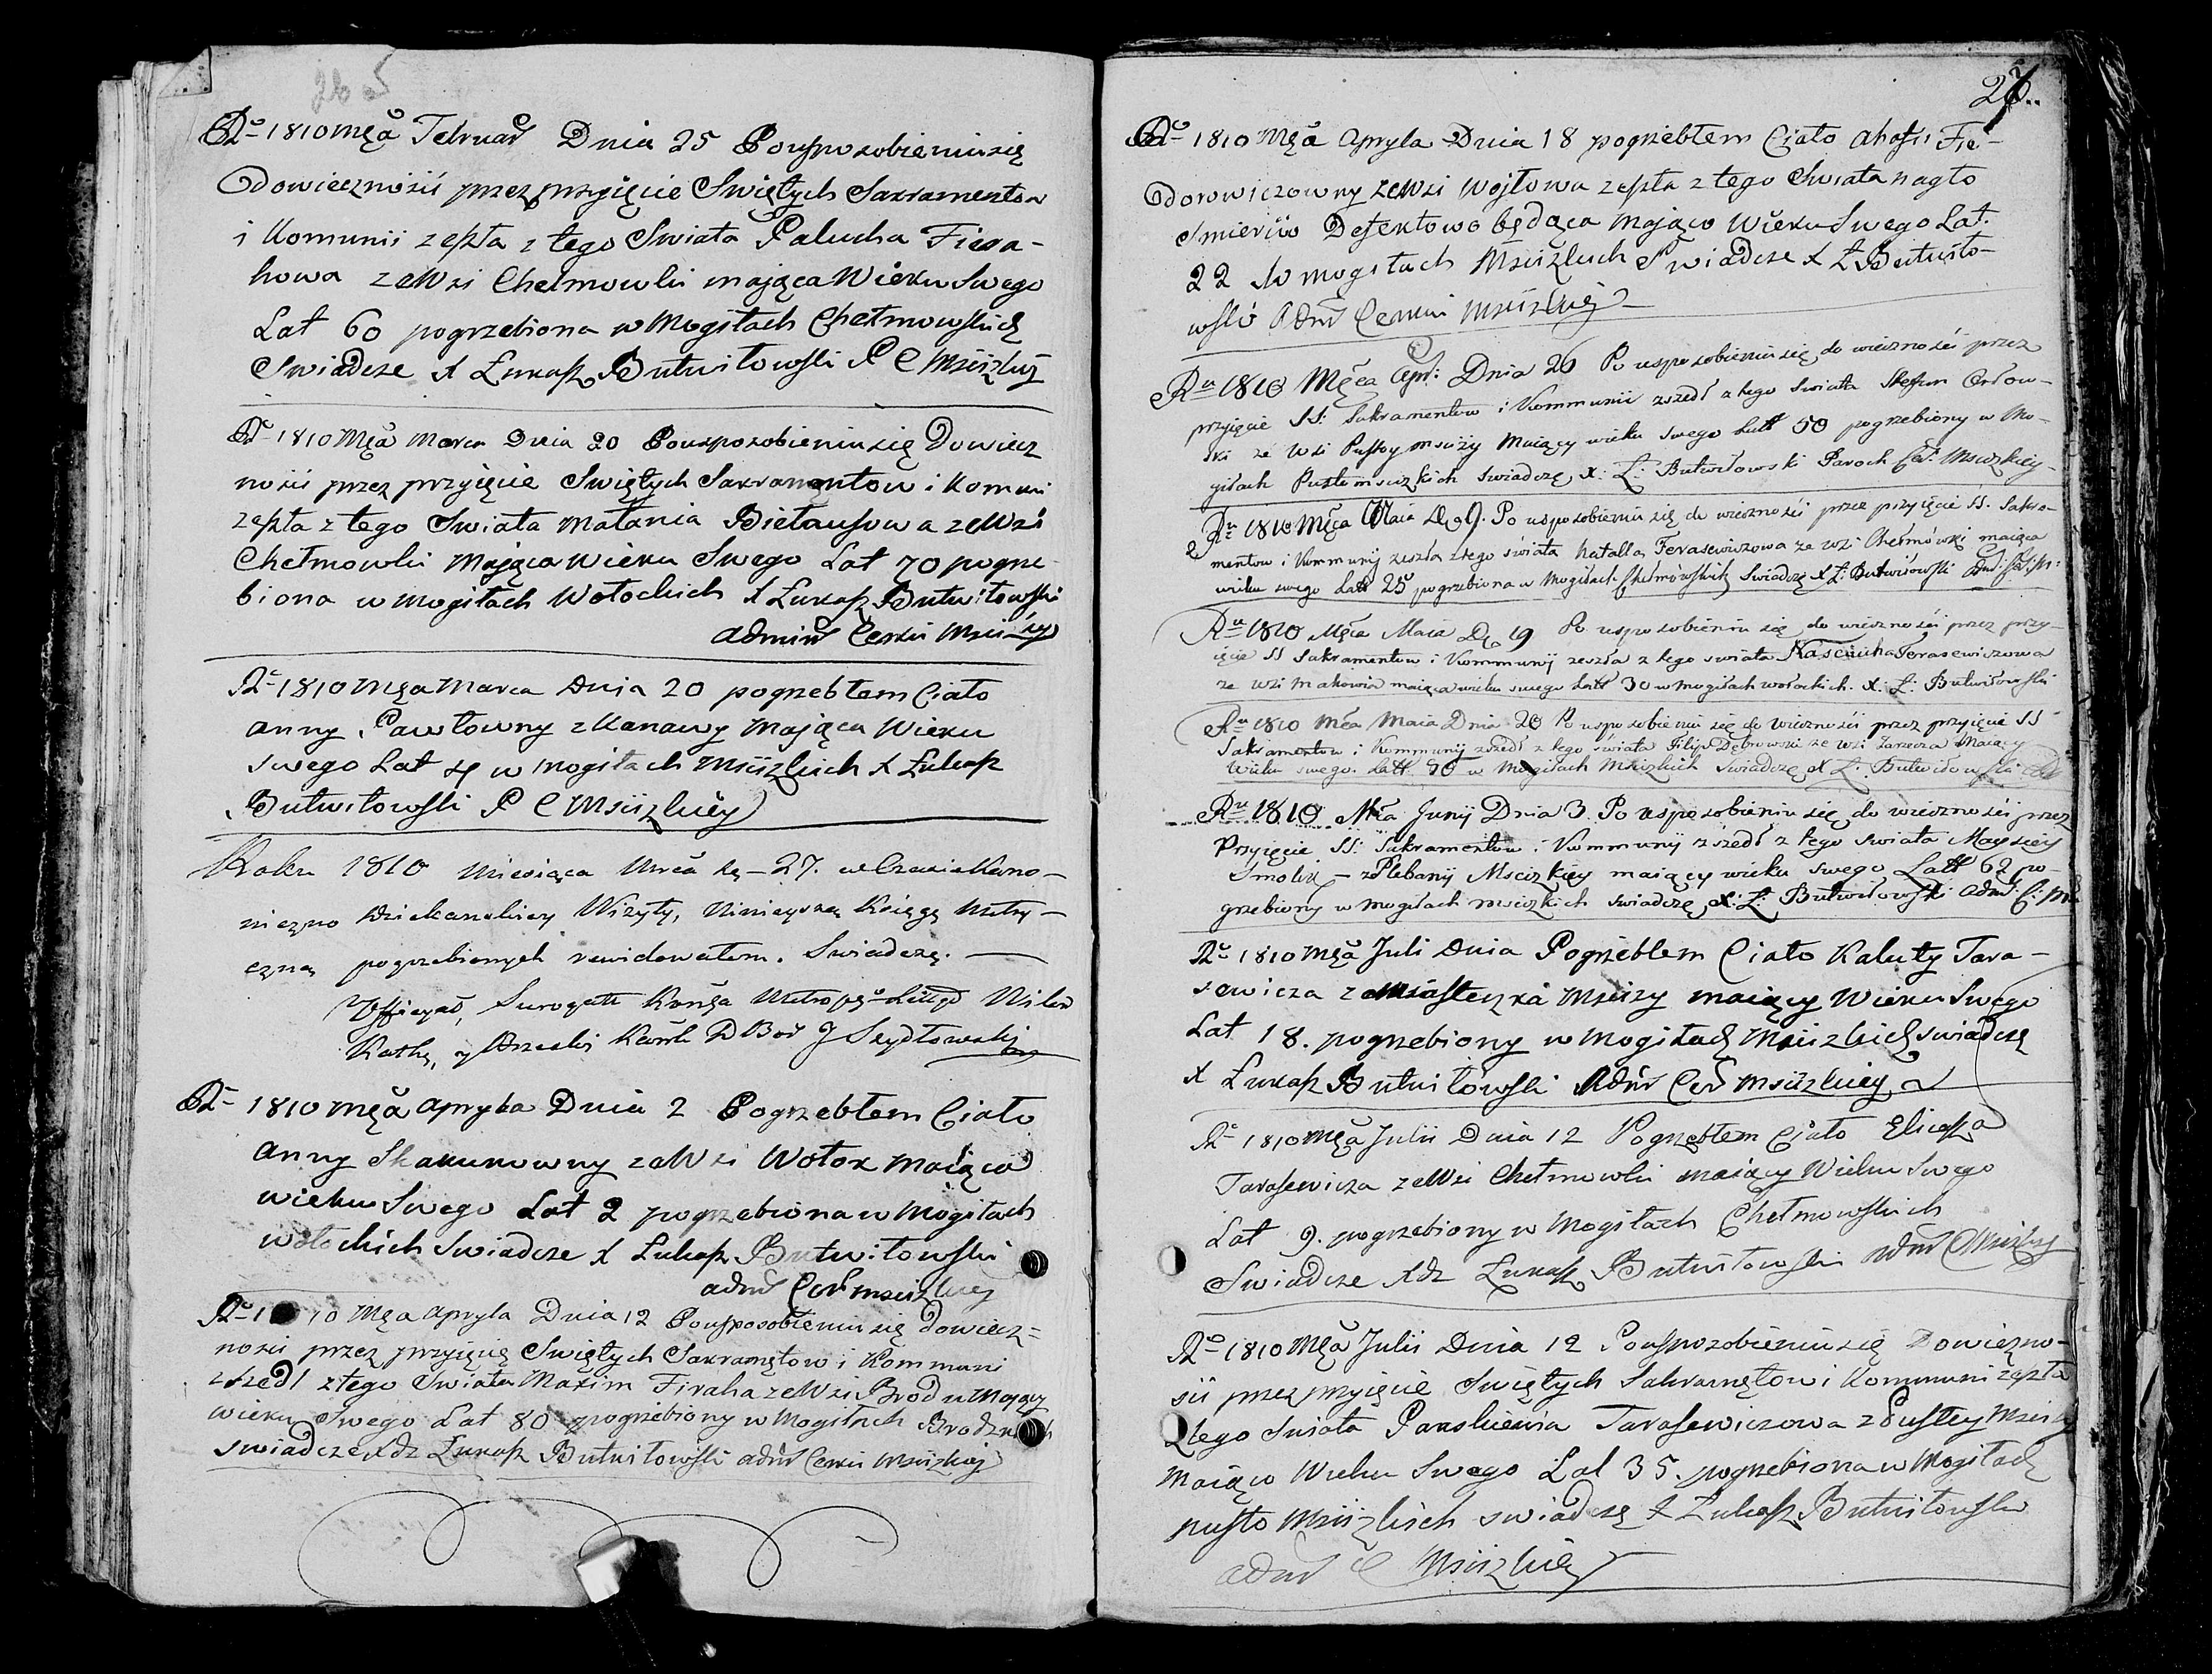 26
R 1810 Męa Februar Dnia 25 Pousposobieniu się
Dowieczności przez przyięcie Swiętych Sakramentow
i Komunii zeszła z tego Swiata Palucha
zeWsi Chełmowki maiąca Wieku Swego
Lat 60 pogrzebiona w Mogiłach Chełmowskich
Swiadcze X Łukasz Butwiłowski P C Mscizkiy
R 1810 Męa Marca Dnia 20 Pousposobieniu się Dowiecz
ności przez przyięcie Swiętych Sakramentow i Komuni
zeszła z tego Swiata Małania zeWsi
Chełmowki Mająca Wieku Swego Lat 70 pogrze
biona w Mogiłach Wołockich X Łukasz Butwiłowski
admin Cerkwi
R 1810 Męa Marca Dnia 20 pogrzebłem Ciało
Anny Pawłowny z Kanawy Mająca Wieku
swego Lat w mogiłach Msciżkich X Łukasz
Butwiłowski P C Msciżkiey
Roku 1810 Miesiąca Marca 27. w Czasie Kano-
niczno Dziekanskiey Wizyty, Ninieyszą Księgę Metry-
czną pogrzebionych rewidowałem. Swiadczę.
Surogatt
R 1810 Męa Apryla Dnia 2 Pogrzebłem Ciało
Anny Skakunowny zeWsi Wołok Maiąca
wieku Swego Lat 2 pogrzebiona w Mogiłach
wołockich Swiadcze X Łukasz Butwiłowski
adm Cer Msciżkiey
R 1810 Męa Apryla Dnia 12 Pousposobieniu się Dowiecz=
ności przez przyięcię Swiętych Sakramętow i Kommuni
zszedł z tego Swiata Maxim Firaha zeWsi Brodu Mający
wieku Swego Lat 80 pogrzebiony w Mogiłach
swiadcze Xdz Łukasz Butwiłowski adm Cerkwi Msciżkiej
27
R 1810 Męa Apryla Dnia 18 pogrzebłem Ciało Ahafii Fie-
dorowiczowny zeWsi Wojtowa zeszła z tego Swiata nagło
Smiercio Defektowo będąca Mająco Wieku Swego Lat
22 w mogiłach Msciżkich Swiadcze X Ł Butwiło-
wski Adm Cerkwi Msciżkiej
R 1810 Męca Apr: Dnia 26 Po usposobieniu się do wieczności przez
przyięcie SS: Sakramentow i Kommunii zszedł z tego Swiata Stefan Orłow-
ski ze Wsi Pustoy Msciży Maiący wieku swego Latt 50 pogrzebiony w Mo-
giłach Swiadczę X: Ł: Butwiłowski Paroch Cer: Msciżkiey
R 1810 Męca Maia D 9. Po usposobieniu się do wieczności przez przyięcie SS. Sakra-
mentow i Kommunij zeszła z tego świata Natalla Ferasewiczowa ze wsi Chełmówki maiąca
wieku swego Latt 25 pogrzebiona w Mogiłach Chełmówskich Swiadczę X Ł: Butwiłowski
R 1810 Męca Maia D 19 Po usposobieniu się do wieczności przez przy-
ięcie SS Sakramentow i Kommunij zeszła z tego swiata Nascucha Terasewiczowa
ze wsi Makowia maiąca wieku swego Latt 30 w mogiłach wołockich. X: Ł: Butwiłowski
R 1810 Męa Maia Dnia 20 Po usposobieniu się do wieczności przez przyięcie SS
Sakramentow i Kommunij zszedł z tego świata Filip Dębrowski ze wsi Zarzecza Maiący
Wieku swego. Latt 50 w Mogiłach Msciżkich Swiadczę X Ł: Butwiłowski
R 1810 Męa Junij Dnia 3. Po usposobieniu się do wieczności przez
Przyięcie SS: Sakramentow i Kommunij zszedł z tego swiata Maysiey
Smolik – z Plebanij Msciżkiey maiący wieku swego Latt 62 po-
grzebiony w Mogiłach msciżkich swiadczę X: Ł: Butwiłowski adm: C:
R 1810 Męa Juli Dnia Pogrzebłem Ciało Kaluty Tara-
sewicza z Miasteczka Msciży maiący Wieku Swego
Lat 18. pogrzebiony w Mogiłach Msciżkich swiadczę
X Łukasz Butwiłowski Adm Cer Msciżkiey
R 1810 Męa Julii Dnia 12 Pogrzebłem Ciało Eliasza
Tarasewicza zeWsi Chełmowki maiący Wieku Swego
Lat 9. pogrzebiony w Mogiłach Chełmowskich
Swiadcze Xdz Łukasz Butwiłowski adm C Msciżkiey
R 1810 Męa Julii Dnia 12 Pousposobieniu się Dowieczno-
ści przez przyięcie Swiętych Sakramętow i Kommuni zeszła
ztego Swiata Paraskiewia Tarasewiczowa z Pustey Msciży
Maiąco Wieku Swego Lat 35. pogrzebiona w Mogiłach
pusto Msciżkich swiadczę X Łukasz Butwiłowski
adm C Msciżkiey